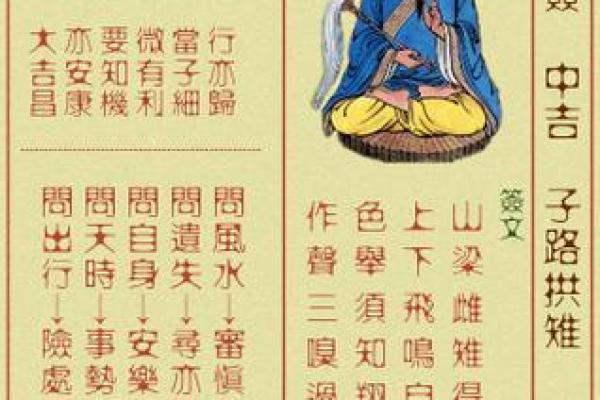 簽 中吉 子路拱雉
簽文
山梁雌雉得
上下飛鳴自
色舉須知翔
作聲三嗅過
行亦歸
當子細
微有利
要知機
亦安康
大吉昌
問風水↓審慎
問遺失↓尋亦
問自身↓安樂
問天時↓事勢
問出行↓險處